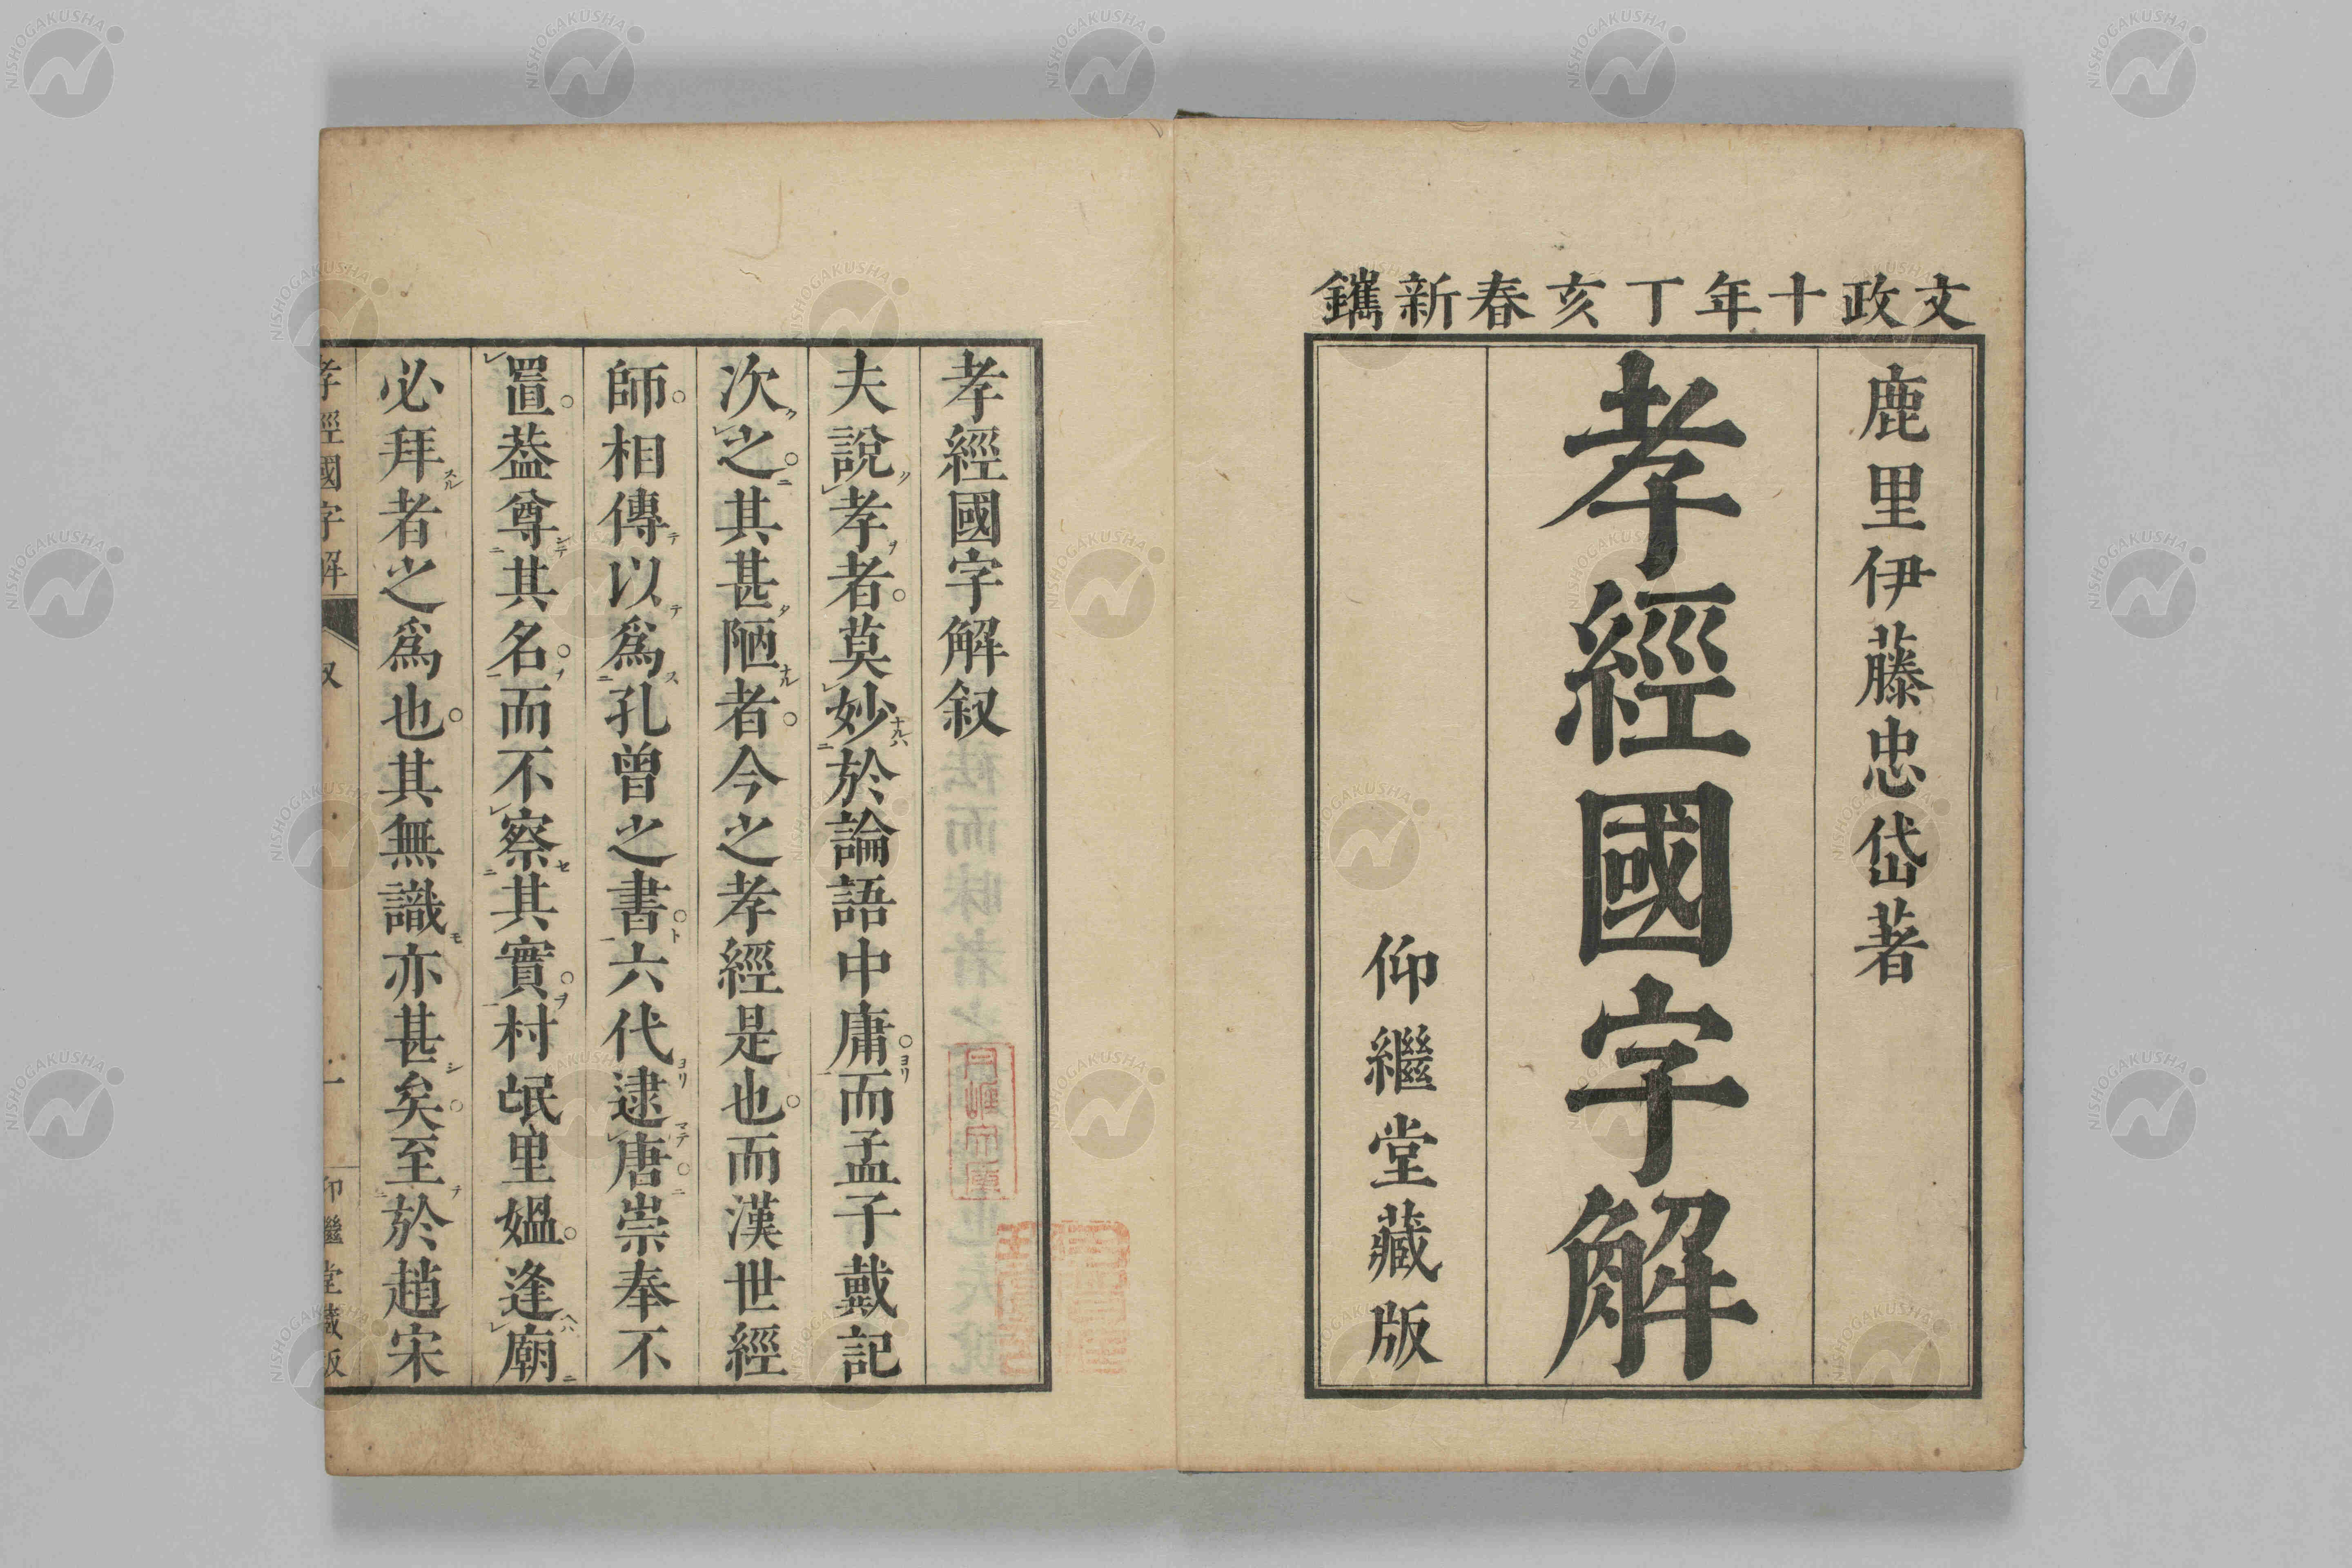 文政十年丁亥春新鐫
鹿里伊藤忠岱著
孝經國字解
仰繼堂藏版
孝經國字解叙
夫說孝者莫妙於論語中庸而孟子戴記
次之其甚陋者今之孝經是也而漢世經
師相傳以爲孔曾之書六代逮唐崇奉不
置葢尊其名而不察其實村氓里媼逢廟
必拜者之爲也其無識亦甚矣至於趙宋
孝經國字解 叙 一 仰繼堂藏版
NISHOGAKUSHA